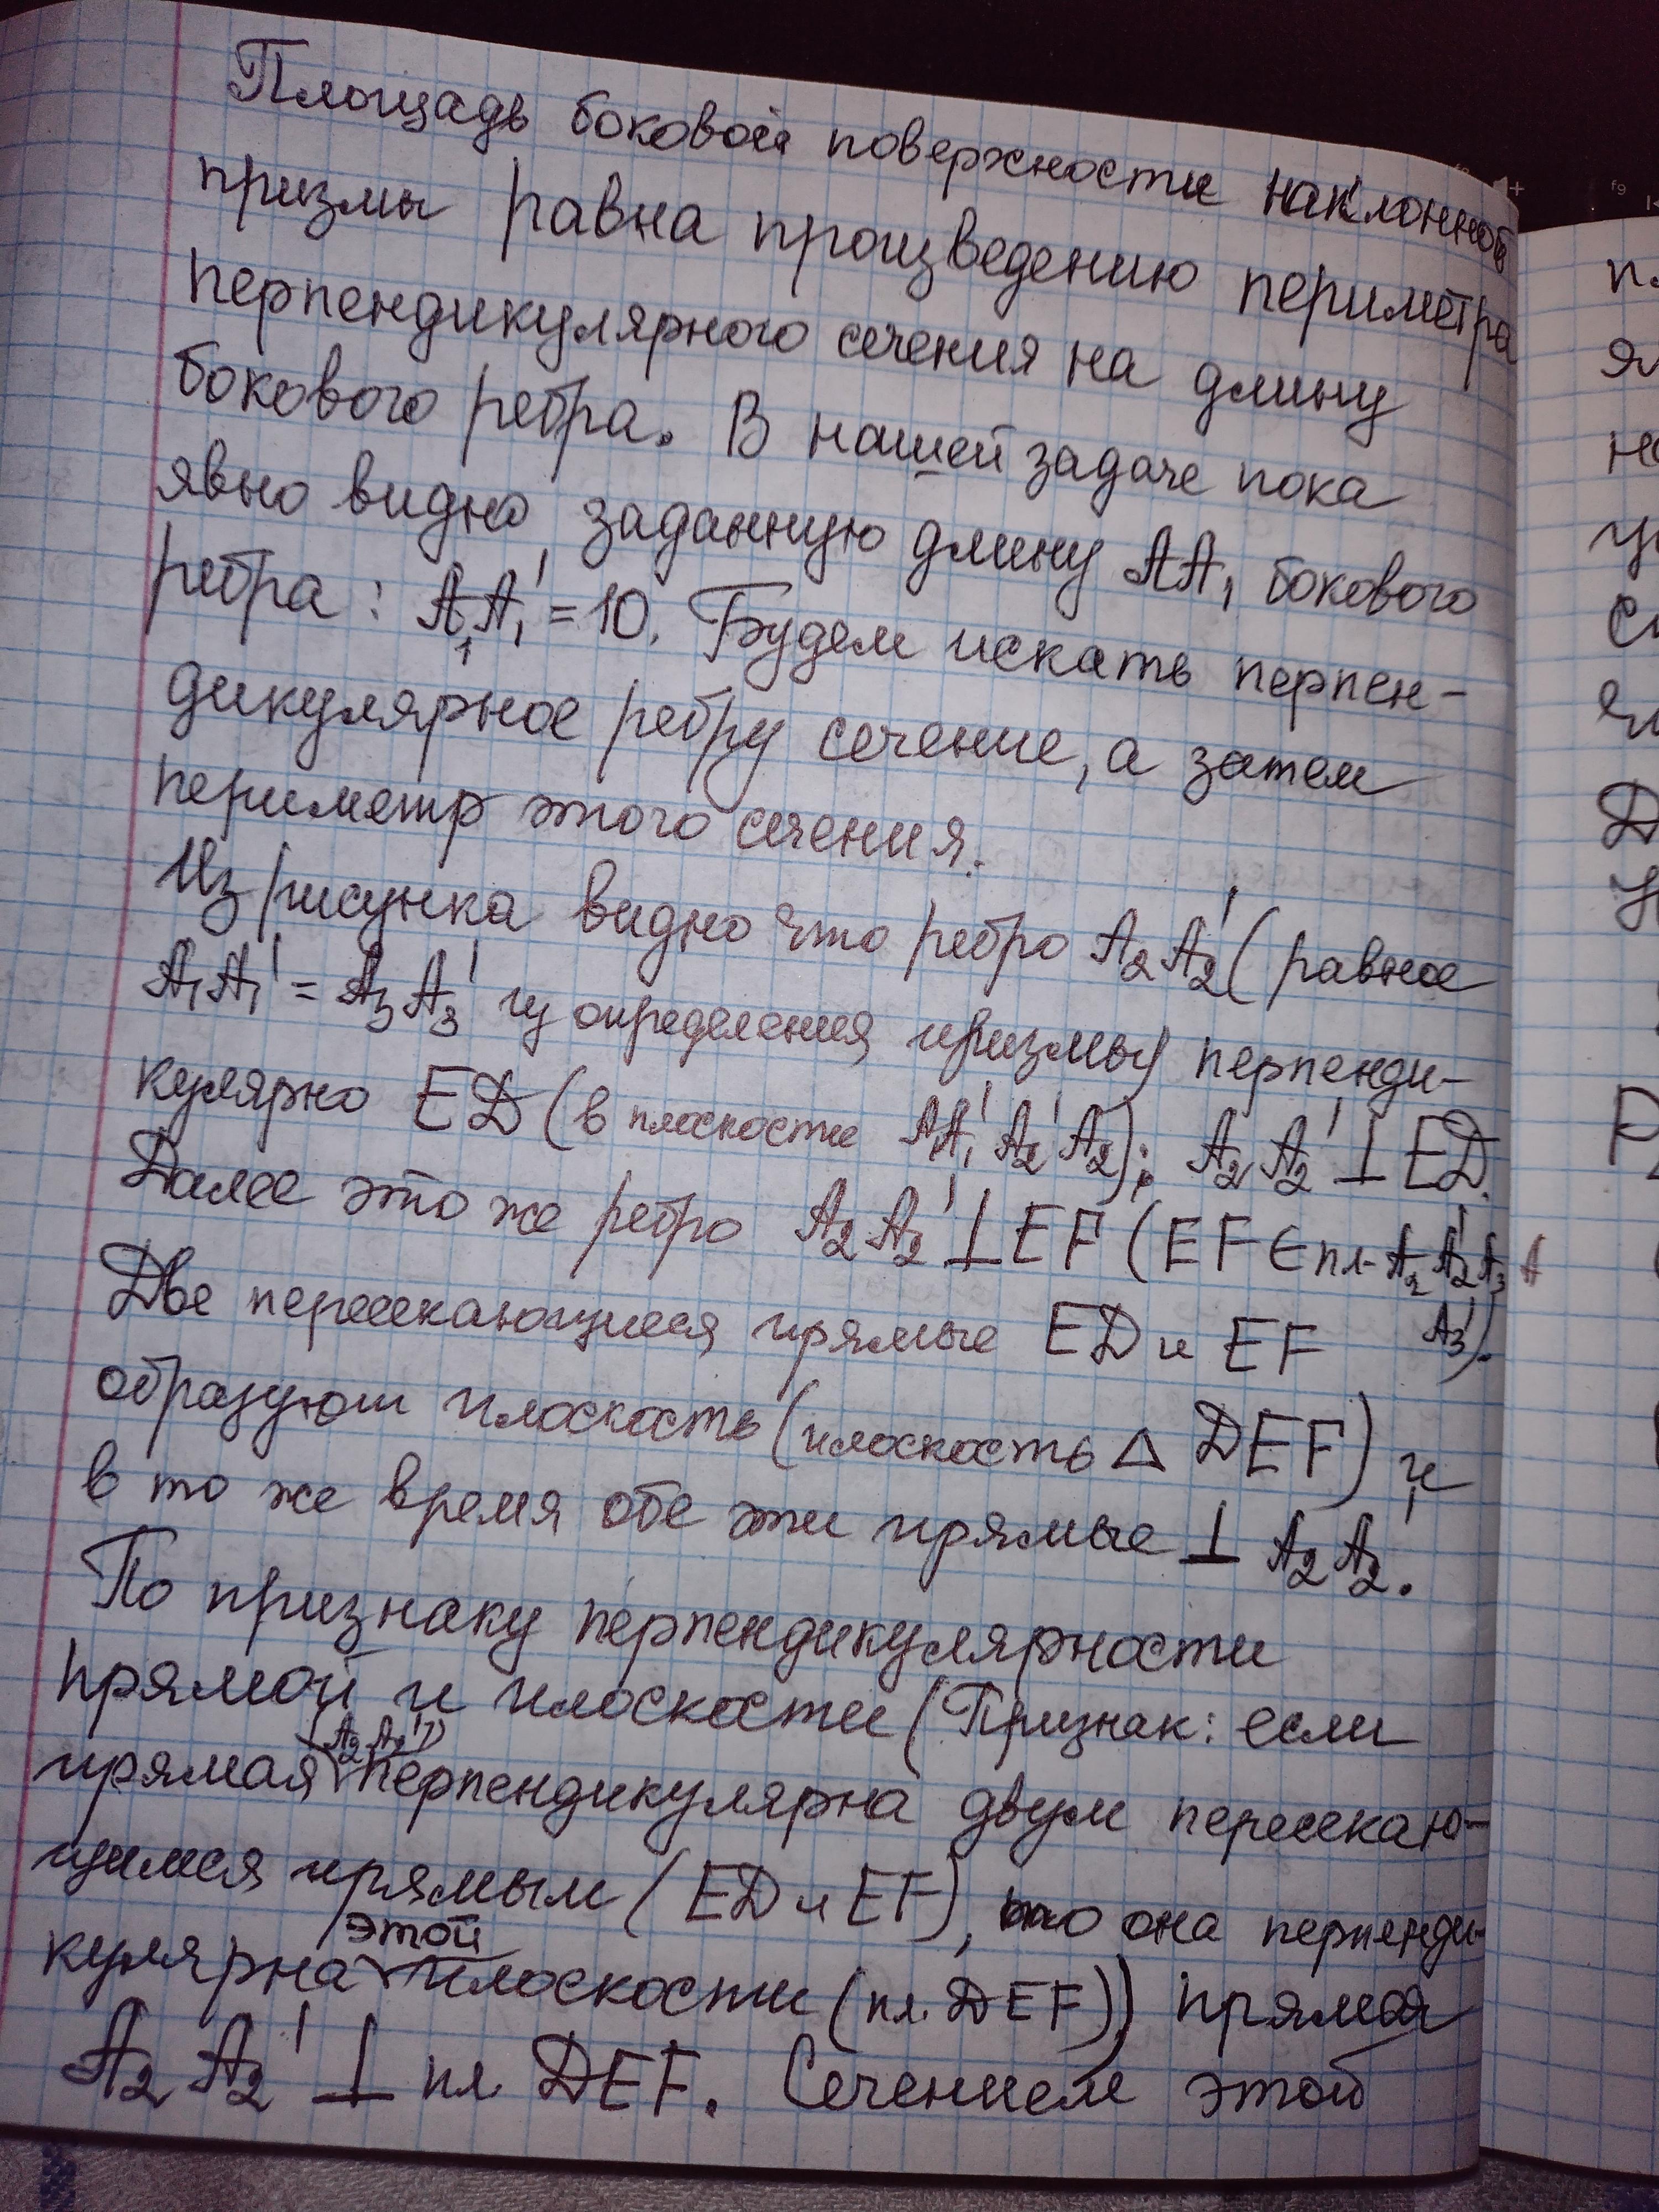 Площадь боковой поверхности наклонной
призмы равна произведению периметра
перпендикулярного сечения на длину
бокового ребра. В нашей задаче пока
явно видно заданную длину AA₁ бокового
ребра: A₁A₁' = 10. Будем искать перпен-
дикулярное ребру сечение, а затем
периметр этого сечения.
Из рисунка видно что ребро A₂A₂' (равное
A₁A₁' = A₃A₃' из определения призмы) перпенди-
кулярно ED (в плоскости AA₁'A₂'A₂); A₂A₂' ⊥ ED.
Далее это же ребро A₂A₂' ⊥ EF (EF ∈ пл. A₂A₂'A₃
A₃').
Две пересекающиеся прямые ED и EF
образуют плоскость (плоскость △ DEF) и
в то же время обе эти прямые ⊥ A₂A₂'.
По признаку перпендикулярности
прямой и плоскости (Признак: если
прямая (A₂A₂') перпендикулярна двум пересекаю-
щимся прямым (ED и EF), то она перпенди-
кулярна этой плоскости (пл. DEF)) прямая
A₂A₂' ⊥ пл DEF. Сечением этой
п
я
Д
P